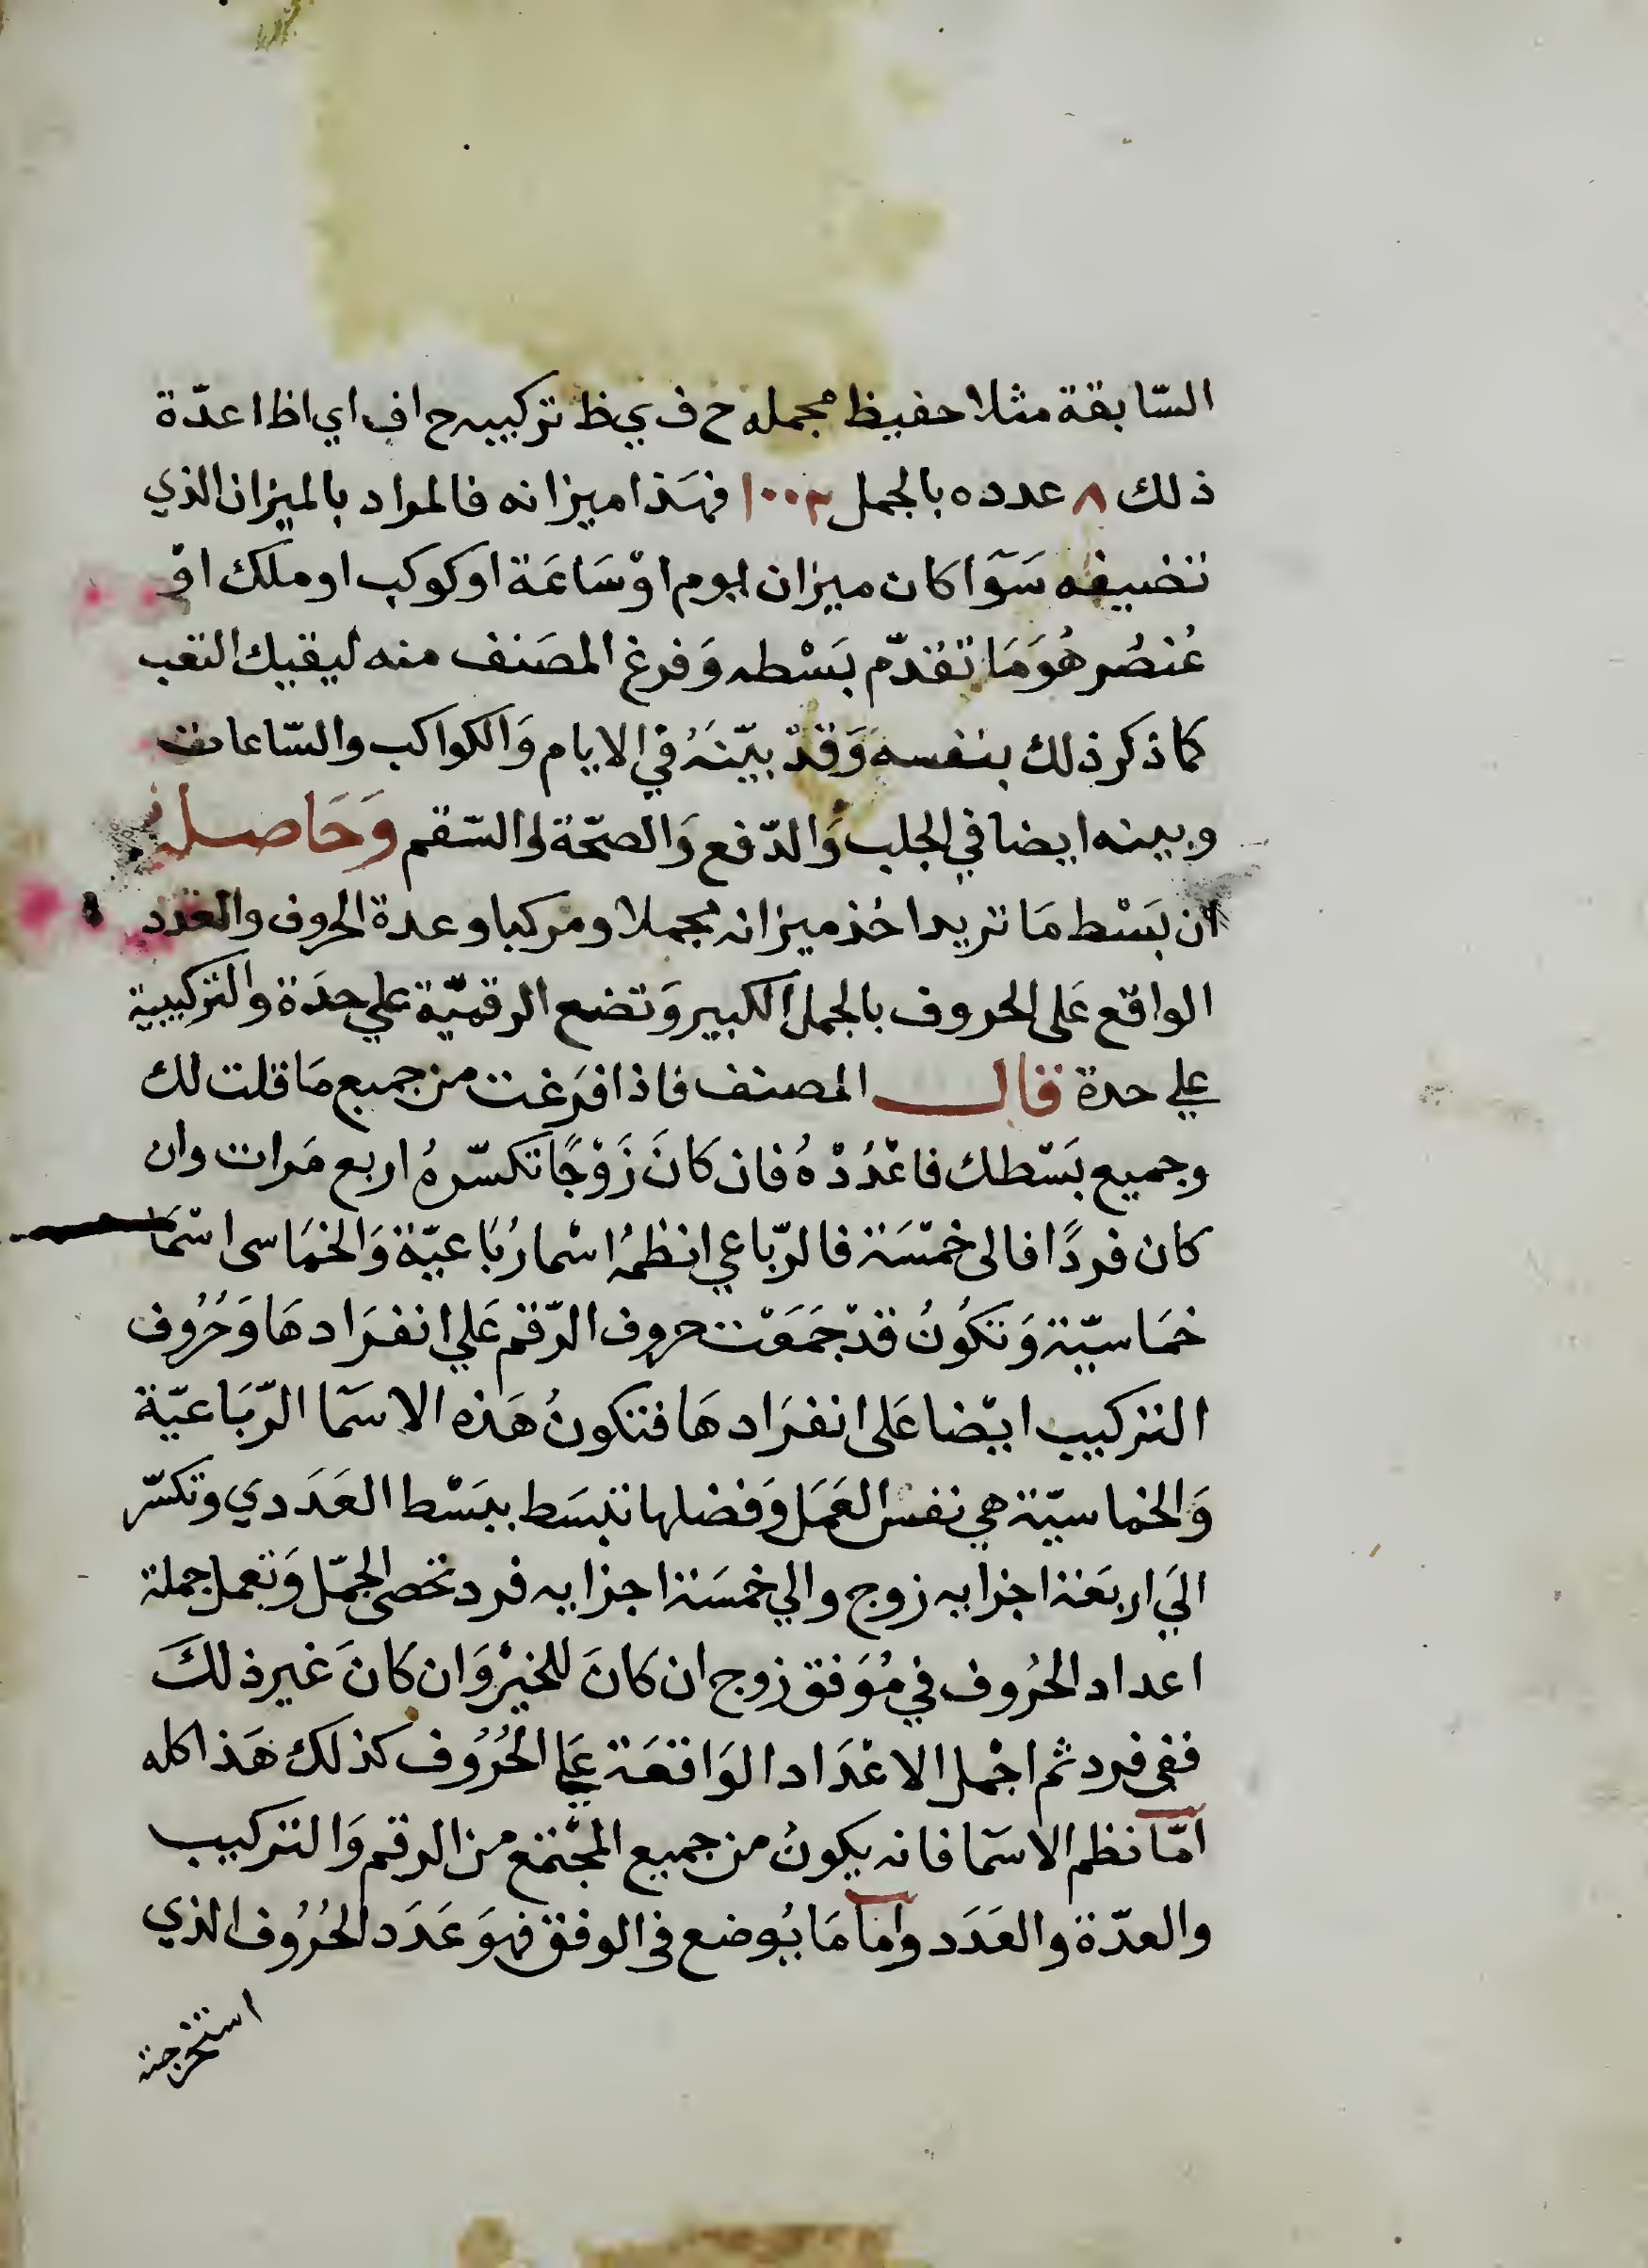 السّابقة مثلا حفيظ مجمله ح ف ي ظ تركيبه ح ا ف ا ي ا ظ ا عدّة
ذلك ٨ عدده بالجمل ١٠٠٣ فهَذا ميزانه فالمراد بالميزان الذي
تضيفه سَوَآ كان ميزان يوم اوْ سَاعَة او كوكب او ملك اوْ
عُنصُر هُوَ مَا تقدّم بَسْطه وَفرغ المصَنف منه ليقيك التعب
كما ذكر ذلك بنفسه وَقدْ بيّنَهُ في الايام وَالكواكب والسّاعات
وبينه ايضا في الجلب وَالدّفع وَالصحّة والسّقم وَحَاصله
ان بَسْط مَا تريد اخذ ميزانه مجملا ومركبا وعدة الحروف والعدد
الواقع عَلى الحروف بالجمل الكبير وَتضع الرقميّة علي حدَة والتركيبية
علي حدة قال المصنف فاذا فرَغت من جميع مَا قلت لك
وجميع بَسْطك فاعْدُدْهُ فان كانَ زَوْجًا تكسّرهُ اربع مَرات وان
كان فردًا فالى خمْسَة فالرّباعي انظمْهُ اسْما رُبَاعيّة وَالخمَاسى اسْمَا
خمَاسيّة وَتكُونُ قدْ جمَعَتْ حروف الرّقم عَلي انفرَادهَا وَحُرُوف
التركيب ايْضا عَلى انفرَادهَا فتكونُ هَذه الاسَمَا الرّبَاعيّة
وَالخماسيّة هي نفس العَمَل وَفضلها تبسَط ببَسْط العَدَدي وتكسّر
الَي اربَعة اجزا به زوج والي خمسَة اجزا به فرد تحصى الجمّل وَتعمل جملة
اعداد الحرُوف في مُوَفق زوج ان كانَ للخيْر وَان كانَ غير ذلكَ
ففى فرد ثم اجْمل الاعْدَاد الوَاقعَة عَلي الحُرُوف كذلك هَذا كله
امّا نظم الاسَمَا فانه يكونُ من جميع المجْتمع من الرقم وَالتركيب
والعدّة والعَدَد وامَا مَا يُوضع فى الوفق فهوَ عَدَد الحُرُوف الذي
استخرجته